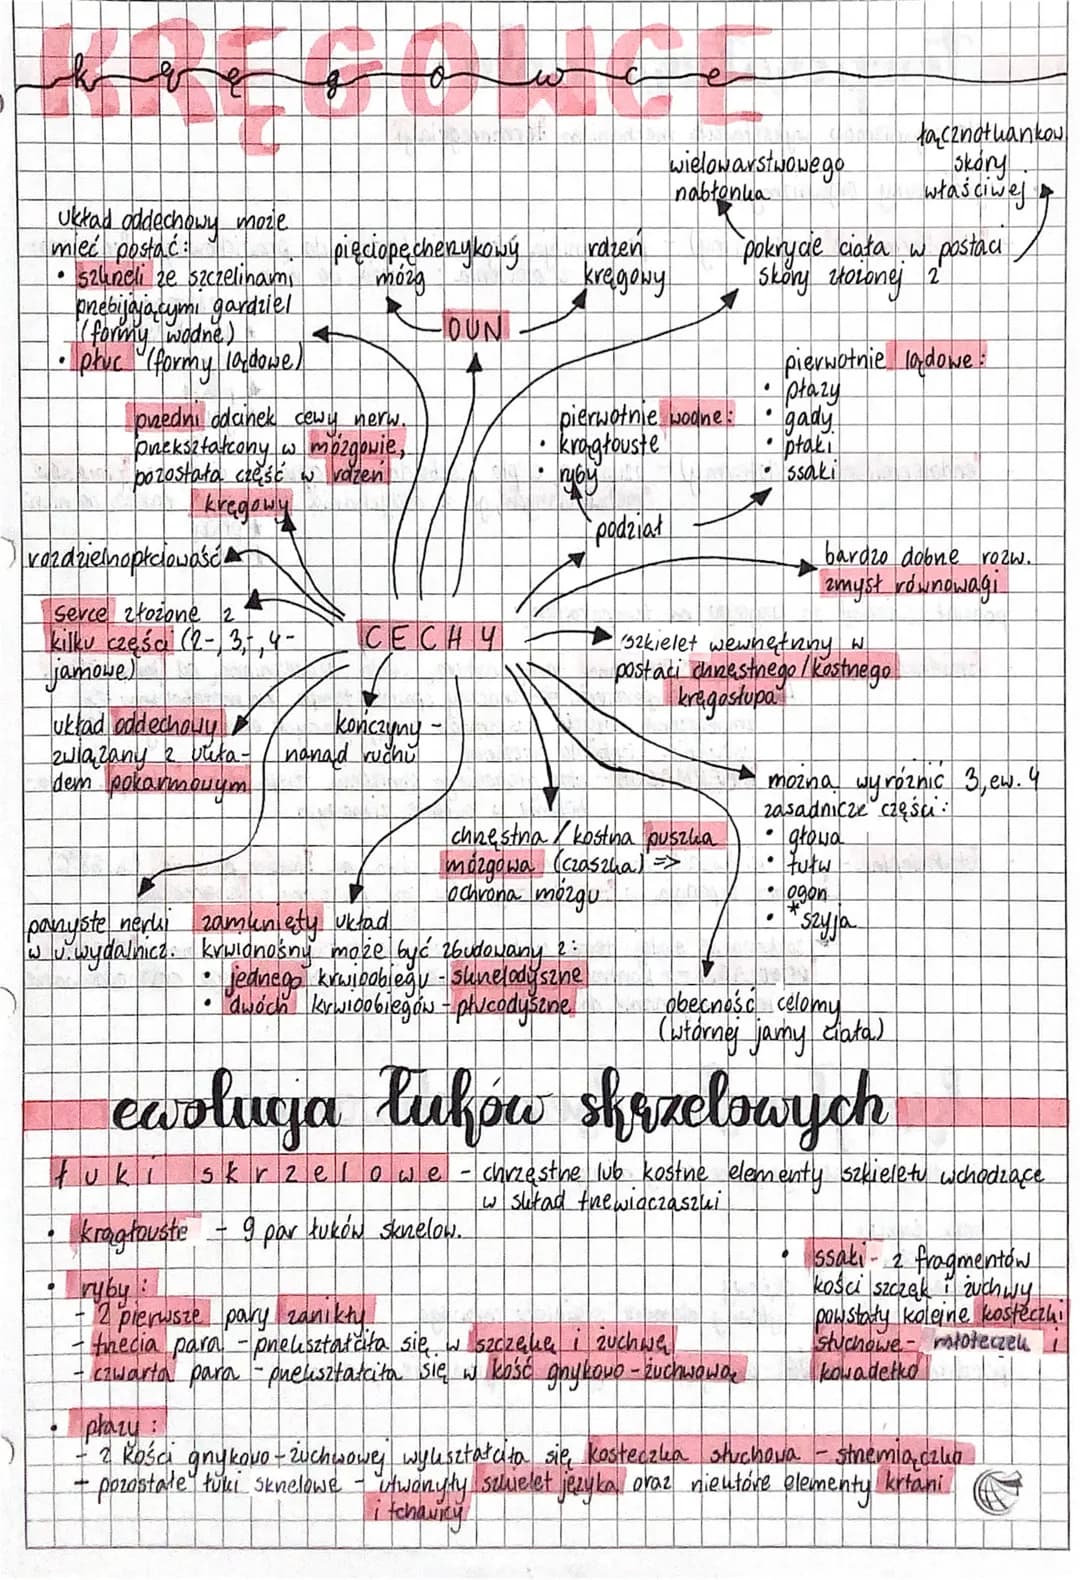 KRĘGOWCE
kręgowce
łącznotkankow.
skóry
właściwej
wielowarstwowego
nabłonka
pokrycie ciała w postaci
skóry złożonej z
układ oddechowy może
mieć postać:
• skrzeli ze szczelinami
przebijającymi gardziel
(formy wodne)
• płuc (formy lądowe)
pięciopęcherzykowy
mózg
rdzeń
kręgowy
OUN
pierwotnie lądowe:
• płazy
• gady
• ptaki
• ssaki
pierwotnie wodne:
• krągłouste
• ryby
podział
przedni odcinek cewy nerw.
przekształcony w mózgowie,
pozostała część w rdzeń
kręgowy
rozdzielnopłciowość
bardzo dobrze rozw.
zmysł równowagi
serce złożone z
kilku części (2-, 3-, 4-
jamowe)
CECHY
szkielet wewnętrzny w
postaci chrzęstnego/kostnego
kręgosłupa
układ oddechowy
związany z ukła-
dem pokarmowym
kończyny -
narząd ruchu
można wyróżnić 3, ew. 4
zasadnicze części:
• głowa
• tułw
• ogon
• *szyja
chrzęstna / kostna puszka
mózgowa (czaszka) =>
ochrona mózgu
parzyste nerki
w u. wydalnicz.
zamknięty układ
krwionośny może być zbudowany z:
• jednego krwioobiegu - skrzelodyszne
• dwóch krwioobiegów - płucodyszne
obecność celomy
(wtórnej jamy ciała)
ewolucja łuków skrzelowych
łuki skrzelowe - chrzęstne lub kostne elementy szkieletu wchodzące
w skład trzewioczaszki
• krągłouste - 9 par łuków skrzelow.
• ryby:
- 2 pierwsze pary zanikły
- trzecia para - przekształciła się w szczękę i żuchwę
- czwarta para - przekształciła się w kość gnykowo-żuchwową
• ssaki - z fragmentów
kości szczęk i żuchwy
powstały kolejne kosteczki
słuchowe - młoteczek i
kowadełko
• płazy:
- z kości gnykowo-żuchwowej wykształciła się kosteczka słuchowa - strzemiączko
- pozostałe łuki skrzelowe - utworzyły szkielet języka oraz niektóre elementy krtani
i tchawicy